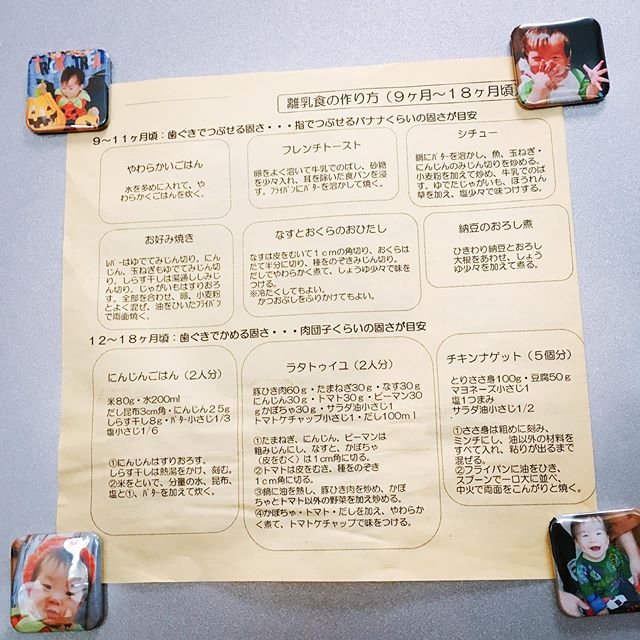 離乳食の作り方（９ヶ月〜１８ヶ月頃）
９〜１１ヶ月頃：歯ぐきでつぶせる固さ・・・指でつぶせるバナナくらいの固さが目安
やわらかいごはん
水を多めに入れて、や
わらかくごはんを炊く。
フレンチトースト
卵をよく溶いて牛乳でのばし、砂糖
を少々入れ、耳を除いた食パンを浸
す。フライパンにバターを溶かして焼く。
シチュー
鍋にバターを溶かし、魚、玉ねぎ・
にんじんのみじん切りを炒める。
小麦粉を加えて炒め、牛乳でのば
す。ゆでたじゃがいも、ほうれん
草を加え、塩少々で味つけする。
お好み焼き
レバーはゆでてみじん切り。にん
じん、玉ねぎもゆでてみじん切
り。しらす干しは湯通ししみじ
ん切り。じゃがいもはすりおろ
す。全部を合わせ、卵、小麦粉
とよく混ぜ、油をひいたフライパン
で両面焼く。
なすとおくらのおひたし
なすは皮をむいて１cmの角切り、おくらは
たて半分に切り、種をのぞきみじん切り。
だしでやわらかく煮て、しょうゆ少々で味を
つける。
※冷たくしてもよい。
かつおぶしをふりかけてもよい。
納豆のおろし煮
ひきわり納豆とおろし
大根をあわせ、しょう
ゆ少々を加えて煮る。
１２〜１８ヶ月頃：歯ぐきでかめる固さ・・・肉団子くらいの固さが目安
にんじんごはん（２人分）
米80g・水200ml
だし昆布3cm角・にんじん25g
しらす干し8g・バター小さじ1/3
塩小さじ1/6
①にんじんはすりおろす。
しらす干しは熱湯をかけ、刻む。
②米をといで、分量の水、昆布、
塩と①、バターを加えて炊く。
ラタトゥイユ（２人分）
豚ひき肉60g・たまねぎ30g・なす30g
にんじん30g・トマト30g・ピーマン30g
かぼちゃ30g・サラダ油小さじ1
トマトケチャップ小さじ1・だし100ml
①たまねぎ、にんじん、ピーマンは
粗みじんにし、なすと、かぼちゃ
（皮をむく）は１cm角に切る。
②トマトは皮をむき、種をのぞき
１cm角に切る。
③鍋に油を熱し、豚ひき肉を炒め、かぼ
ちゃとトマト以外の野菜を加え炒める。
④かぼちゃ・トマト・だしを加え、やわら
かく煮て、トマトケチャップで味をつける。
チキンナゲット（５個分）
とりささ身100g・豆腐50g
マヨネーズ小さじ1
塩1つまみ
サラダ油小さじ1/2
①ささ身は粗めに刻み、
ミンチにし、油以外の材料を
すべて入れ、粘りが出るまで
混ぜる。
②フライパンに油をひき、
スプーンで一口大に並べ、
中火で両面をこんがりと焼く。